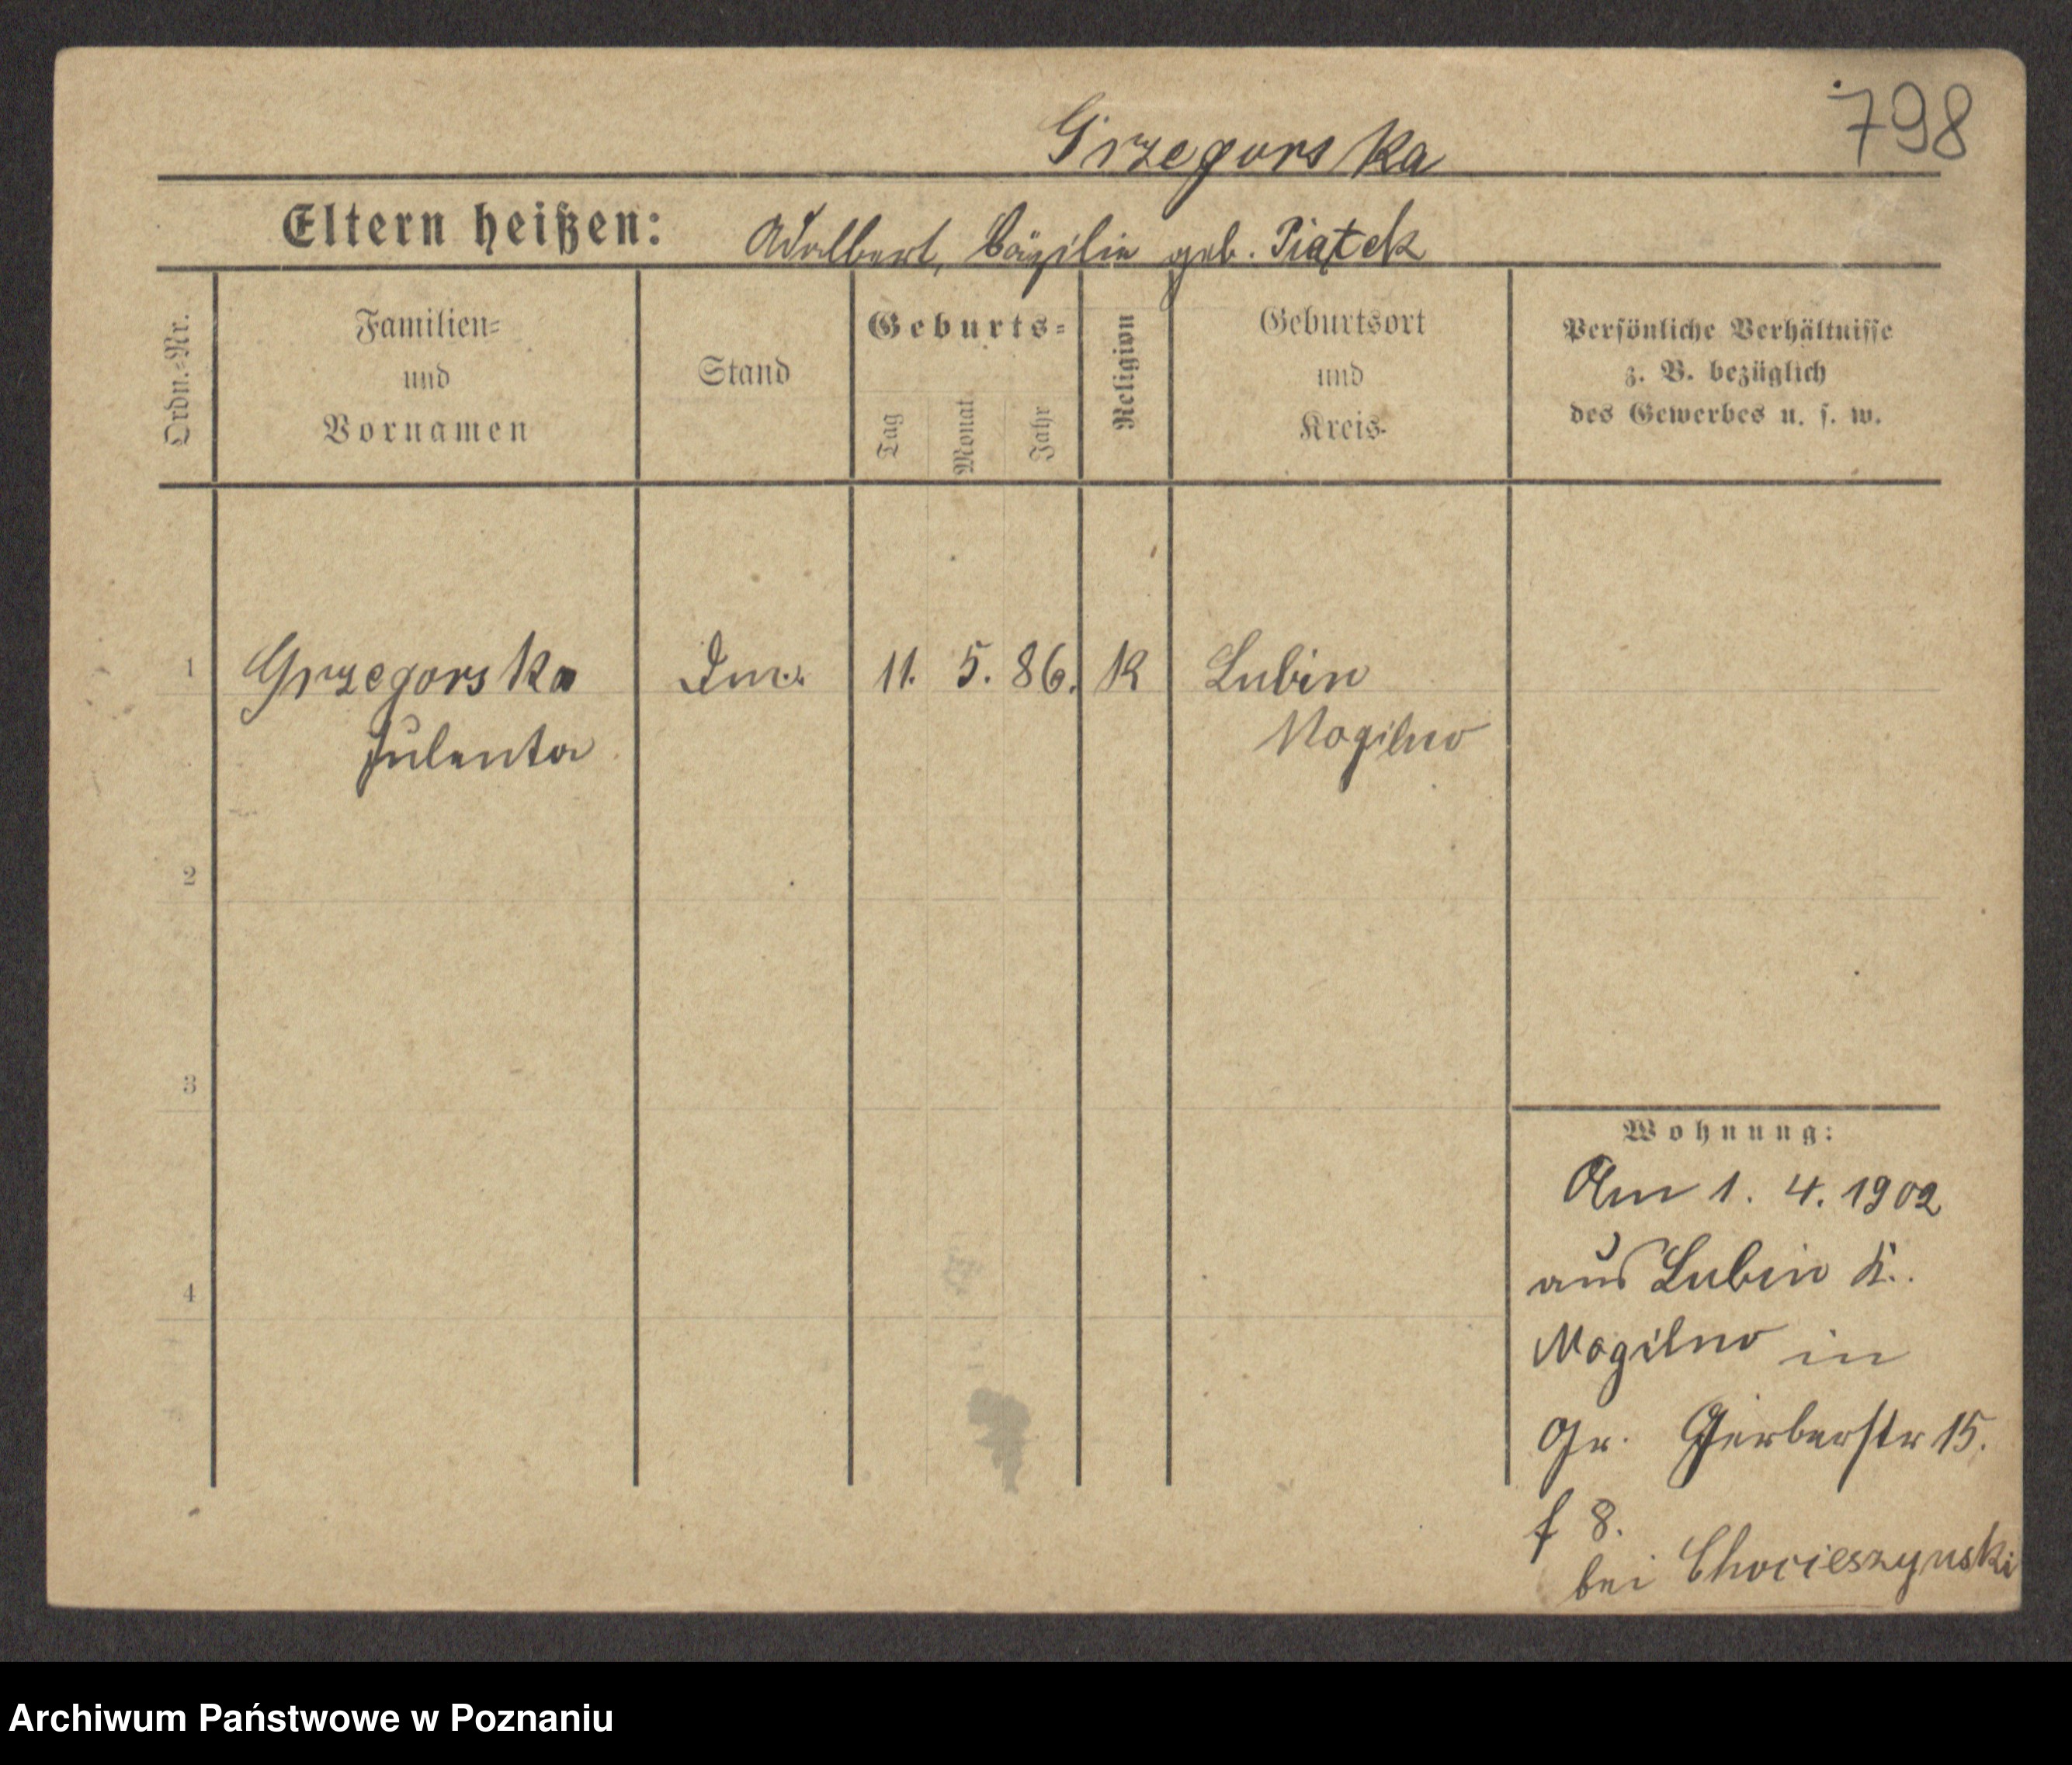 798
Grzegorska
Eltern heißen: Adalbert, Cäzilie geb. Piątek
Ordn.-Nr.
Familien-
und
Vornamen
Stand
Geburts-
Tag
Monat
Jahr
Religion
Geburtsort
und
Kreis
Persönliche Verhältnisse
z. B. bezüglich
des Gewerbes u. s. w.
1 Grzegorska 11. 5. 86. K Lubin
Mogilno
2
3
4
Wohnung:
Am 1. 4. 1902
aus Lubin K.
Mogilno in
Gr. Gerberstr 15.
8.
bei Chocieszynski
Archiwum Państwowe w Poznaniu